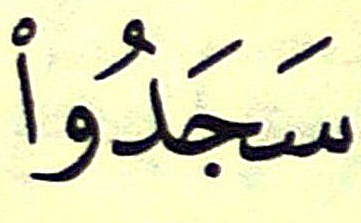 سَجَدُواْ